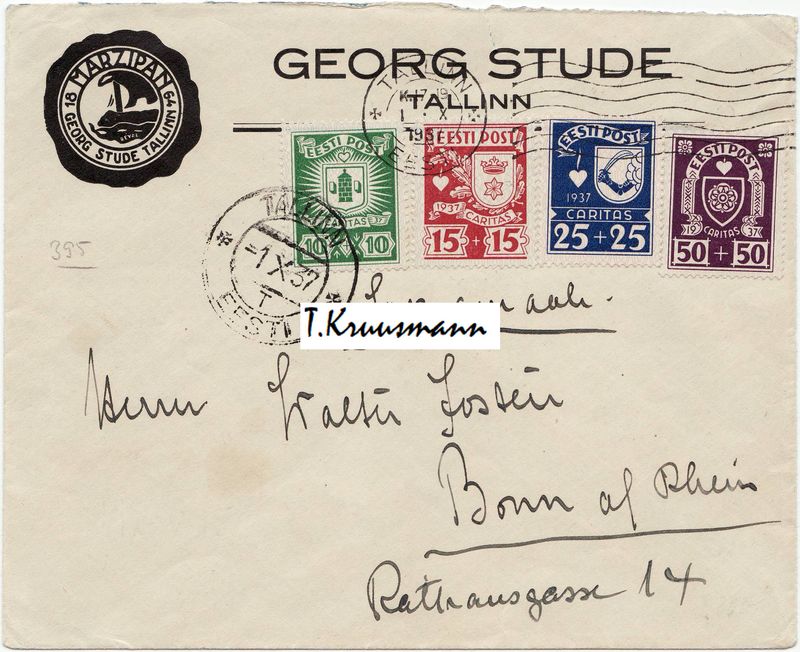 MARZIPAN
18 64
REVAL
GEORG STUDE TALLINN
GEORG STUDE
TALLINN
TALLINN
1 X
193
EESTI
EESTI POST
CARITAS 37
10+10
EESTI POST
1937
CARITAS
15+15
EESTI POST
1937
CARITAS
25+25
EESTI POST
19 37
CARITAS
50+50
395
TALLINN
-1 X 37
T
EESTI
T.Kruusmann
Saksamaale.
Herrn Walter Josten
Bonn a/ Rhein
Rathausgasse 14